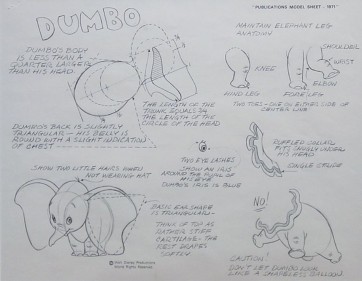 DUMBO
"PUBLICATIONS MODEL SHEET - 1971"
MAINTAIN ELEPHANT LEG
ANATOMY
DUMBO'S BODY
IS LESS THAN A
QUARTER LARGER
THAN HIS HEAD.
SHOULDER
WRIST
KNEE
ELBOW
HIND LEG
FORELEG
THE LENGTH OF THE
TRUNK EQUALS 3/4
THE LENGTH OF THE
CIRCLE OF THE HEAD
TWO TOES - ONE ON EITHER SIDE OF
CENTER LINE
DUMBO'S BACK IS SLIGHTLY
TRIANGULAR - HIS BELLY IS
ROUND WITH A SLIGHT INDICATION
OF CHEST
RUFFLED COLLAR
FIT SNUGLY UNDER
HIS HEAD
SINGLE STRIPE
TWO EYE LASHES
SHOW AN IRIS
AROUND THE PUPIL OF
HIS EYE
DUMBO'S IRIS IS BLUE
SHOW TWO LITTLE HAIRS WHEN
NOT WEARING HAT
BASIC EAR SHAPE
IS TRIANGULAR -
THINK OF TOP AS
RATHER STIFF
CARTILAGE - THE
REST DRAPES
SOFTLY
NO!
© Walt Disney Productions
World Rights Reserved
CAUTION!
DON'T LET DUMBO LOOK
LIKE A SHAPELESS BALLOON